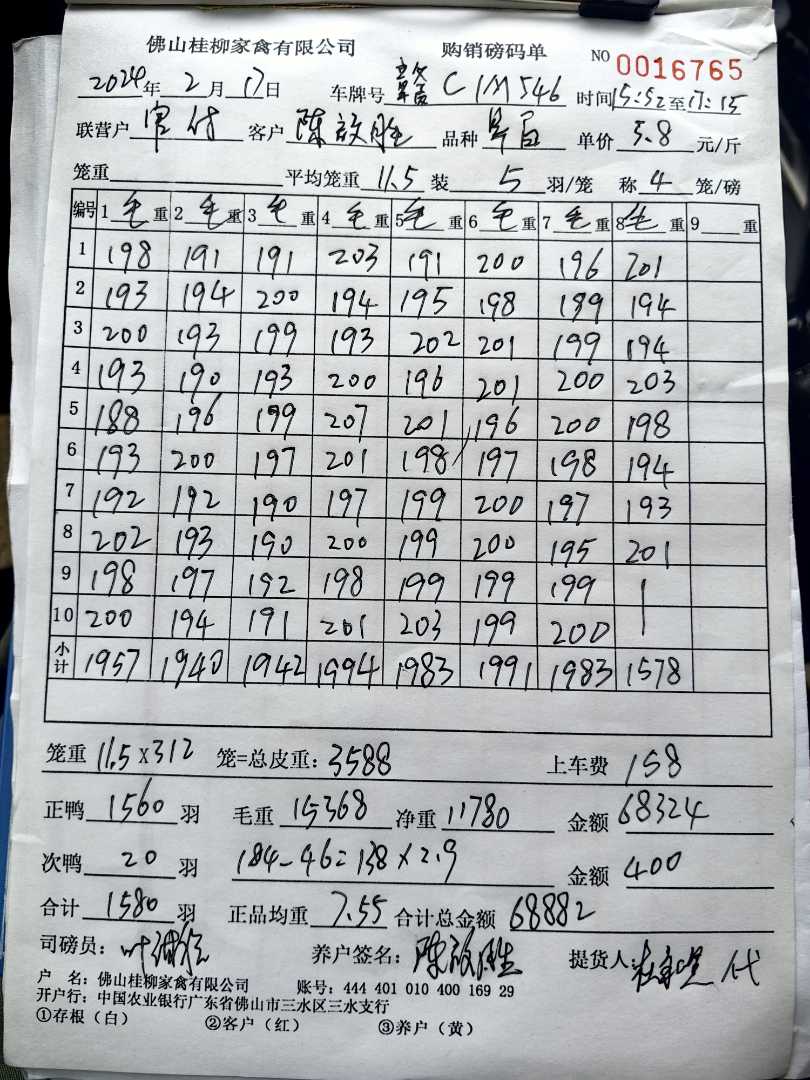 佛山桂柳家禽有限公司 购销磅码单 NO 0016765
2024年 2 月 17日 车牌号 C 1M546 时间15:52至17:15
联营户 客户 陈 胜 品种 单价 5.8 元/斤
笼重 平均笼重 11.5 装 5 羽/笼 称 4 笼/磅
编号 1 毛 重 2 毛 重 3 毛 重 4 毛 重 5 毛 重 6 毛 重 7 毛 重 8 毛 重 9 重
1 198 191 191 203 191 200 196 201
2 193 194 200 194 195 198 189 194
3 200 193 199 193 202 201 199 194
4 193 190 193 200 196 201 200 203
5 188 196 199 207 201 196 200 198
6 193 200 197 201 198 197 198 194
7 192 192 190 197 199 200 197 193
8 202 193 190 200 199 200 195 201
9 198 197 192 198 199 199 199
10 200 194 191 201 203 199 200
小计 1957 1940 1942 1994 1983 1991 1983 1578
笼重 11.5×312 笼=总皮重: 3588 上车费 158
正鸭 1560 羽 毛重 15368 净重 11780 金额 68324
次鸭 20 羽 184-46=138×2.9 金额 400
合计 1580 羽 正品均重 7.55 合计总金额 68882
司磅员: 叶 养户签名: 陈 胜 提货人: 代
户 名: 佛山桂柳家禽有限公司 账号: 444 401 010 400 169 29
开户行: 中国农业银行广东省佛山市三水区三水支行
①存根（白） ②客户（红） ③养户（黄）